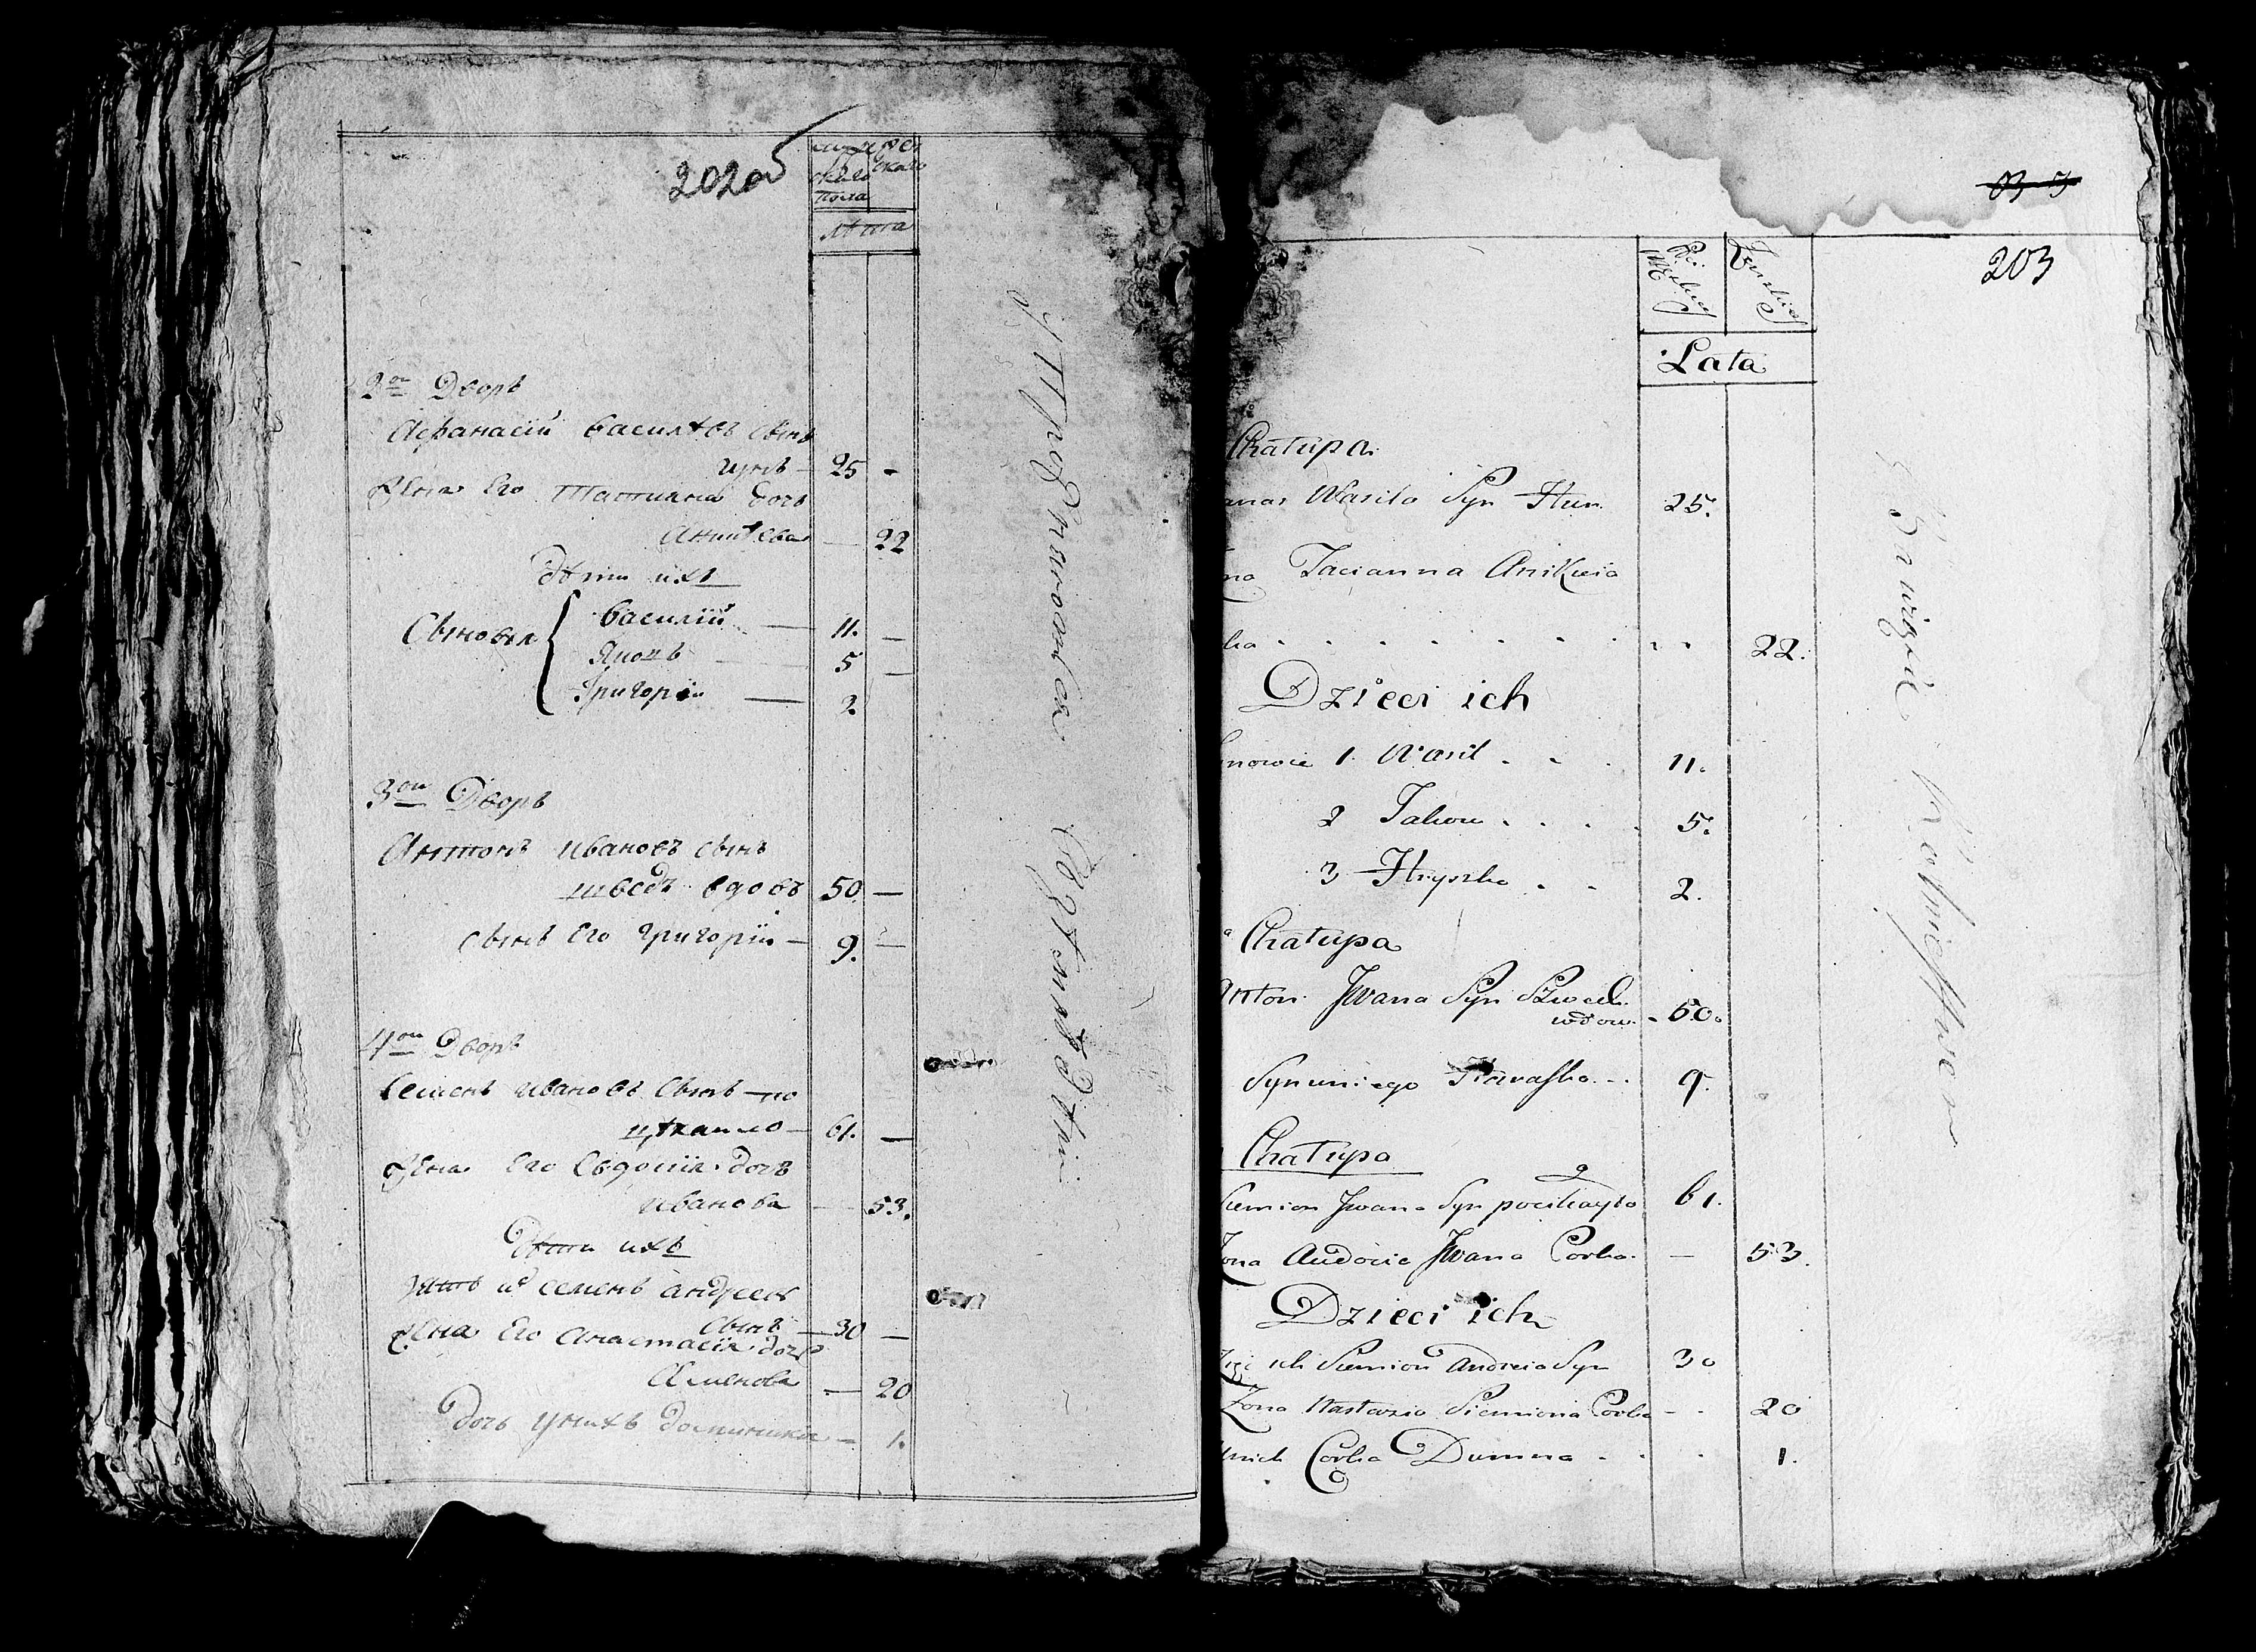 202об
скаго
скаго
пола
Лѣта
2ой Дворъ
Афанасій василѣвъ сынъ
гунъ - 25 -
Жена Его Татиана дочь
Аникѣева - 22
дѣти ихъ
Сыновья
василій — 11. —
Яковъ — 5 —
Григорій — 2.
3ой Дворъ
Антонъ ивановъ сынъ
шведъ вдовъ 50. —
сынъ Его григорій — 9. —
4ой Дворъ
Семенъ ивановъ сынъ — по
цѣхаило — 61. —
Жена Его Евдосія дочь
иванова — 53.
Дѣти ихъ
зять ихъ семенъ андреевъ
сынъ — 30 —
Жена Его Анастасія дочь
Семенова — 20
дочь у нихъ домникия — 1.
203
Męskiey
Żenskiey
Lata
Chatupa
anas Wasila Syn Hun. 25.
na Tacianna Anikieia
ka 22.
Dzieci ich
ynowie 1. Wasil . . . 11.
2 Jakow . . . . 5.
3 Hryszko . . 2.
Chatupa
Anton Jwana Syn Szwed
wdow. - 50.
Syn uniego Harasko . . . 9.
Chatupa
Siemion Jwana Syn pocikayło 61.
Żona Audocie Jwana Corka. — 53.
Dzieci ich
Zięć ich Siemion Andreia Syn 30
Żona Nastazia Siemiona Corka - . 20
Unich Corka Dumna . . . 1.